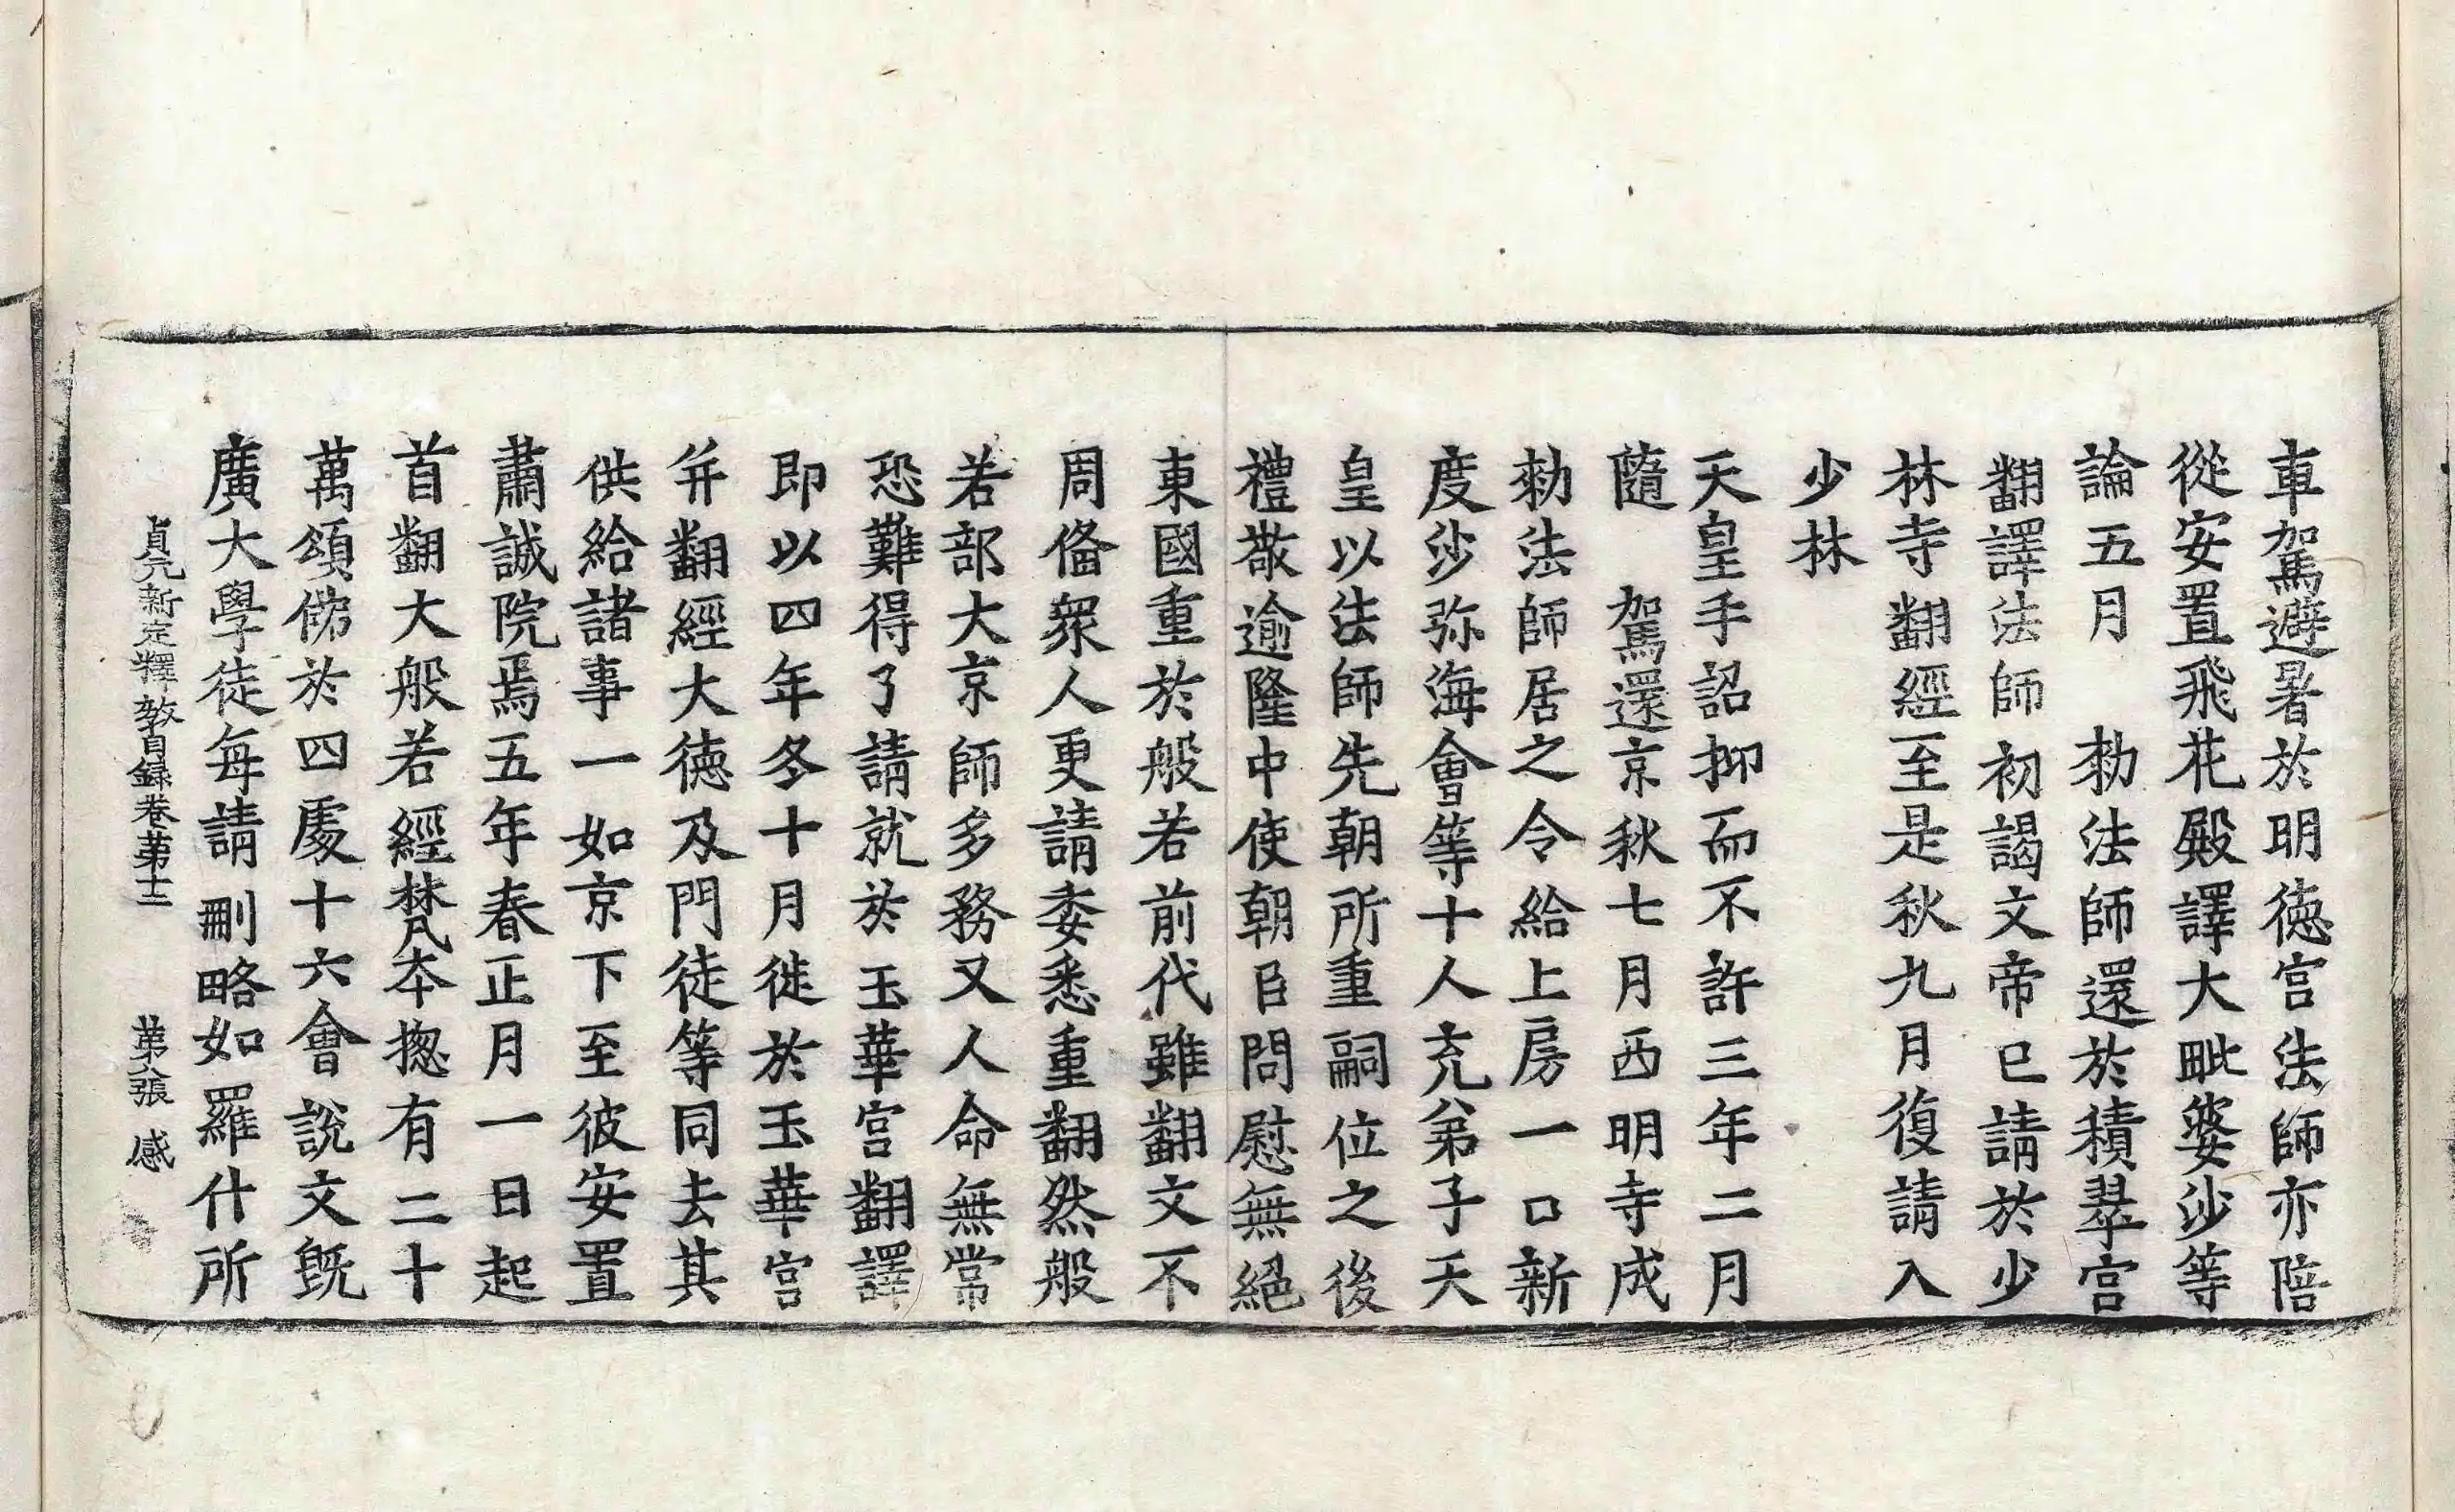 車駕避暑於明德宮法師亦陪
從安置飛花殿譯大毗婆沙等
論五月　勑法師還於積翠宮
翻譯法師初謁文帝已請於少
林寺翻經至是秋九月復請入
少林
天皇手詔抑而不許三年二月
隨　駕還京秋七月西明寺成
勑法師居之令給上房一口新
度沙弥海會等十人充弟子天
皇以法師先朝所重嗣位之後
禮敬逾隆中使朝臣問慰無絕
東國重於般若前代雖翻文不
周俻衆人更請委悉重翻然般
若部大京師多務又人命無常
恐難得了請就於玉華宮翻譯
即以四年冬十月徙於玉華宮
并翻經大德及門徒等同去其
供給諸事一如京下至彼安置
肅誠院焉五年春正月一日起
首翻大般若經梵本揔有二十
萬頌佛於四處十六會說文旣
廣大學徒每請刪略如羅什所
貞元新定釋教目録卷第十二　第八張　感